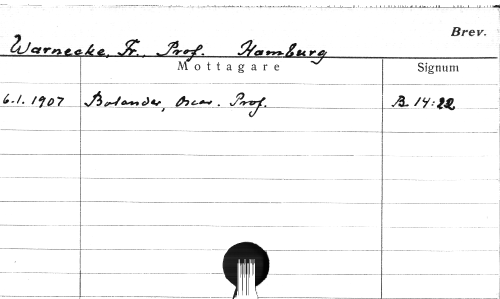 Brev.
Warnecke, Fr., Prof. Hamburg
Mottagare Signum
6.1.1907 Bolander, Oscar. Prof. B 14:22